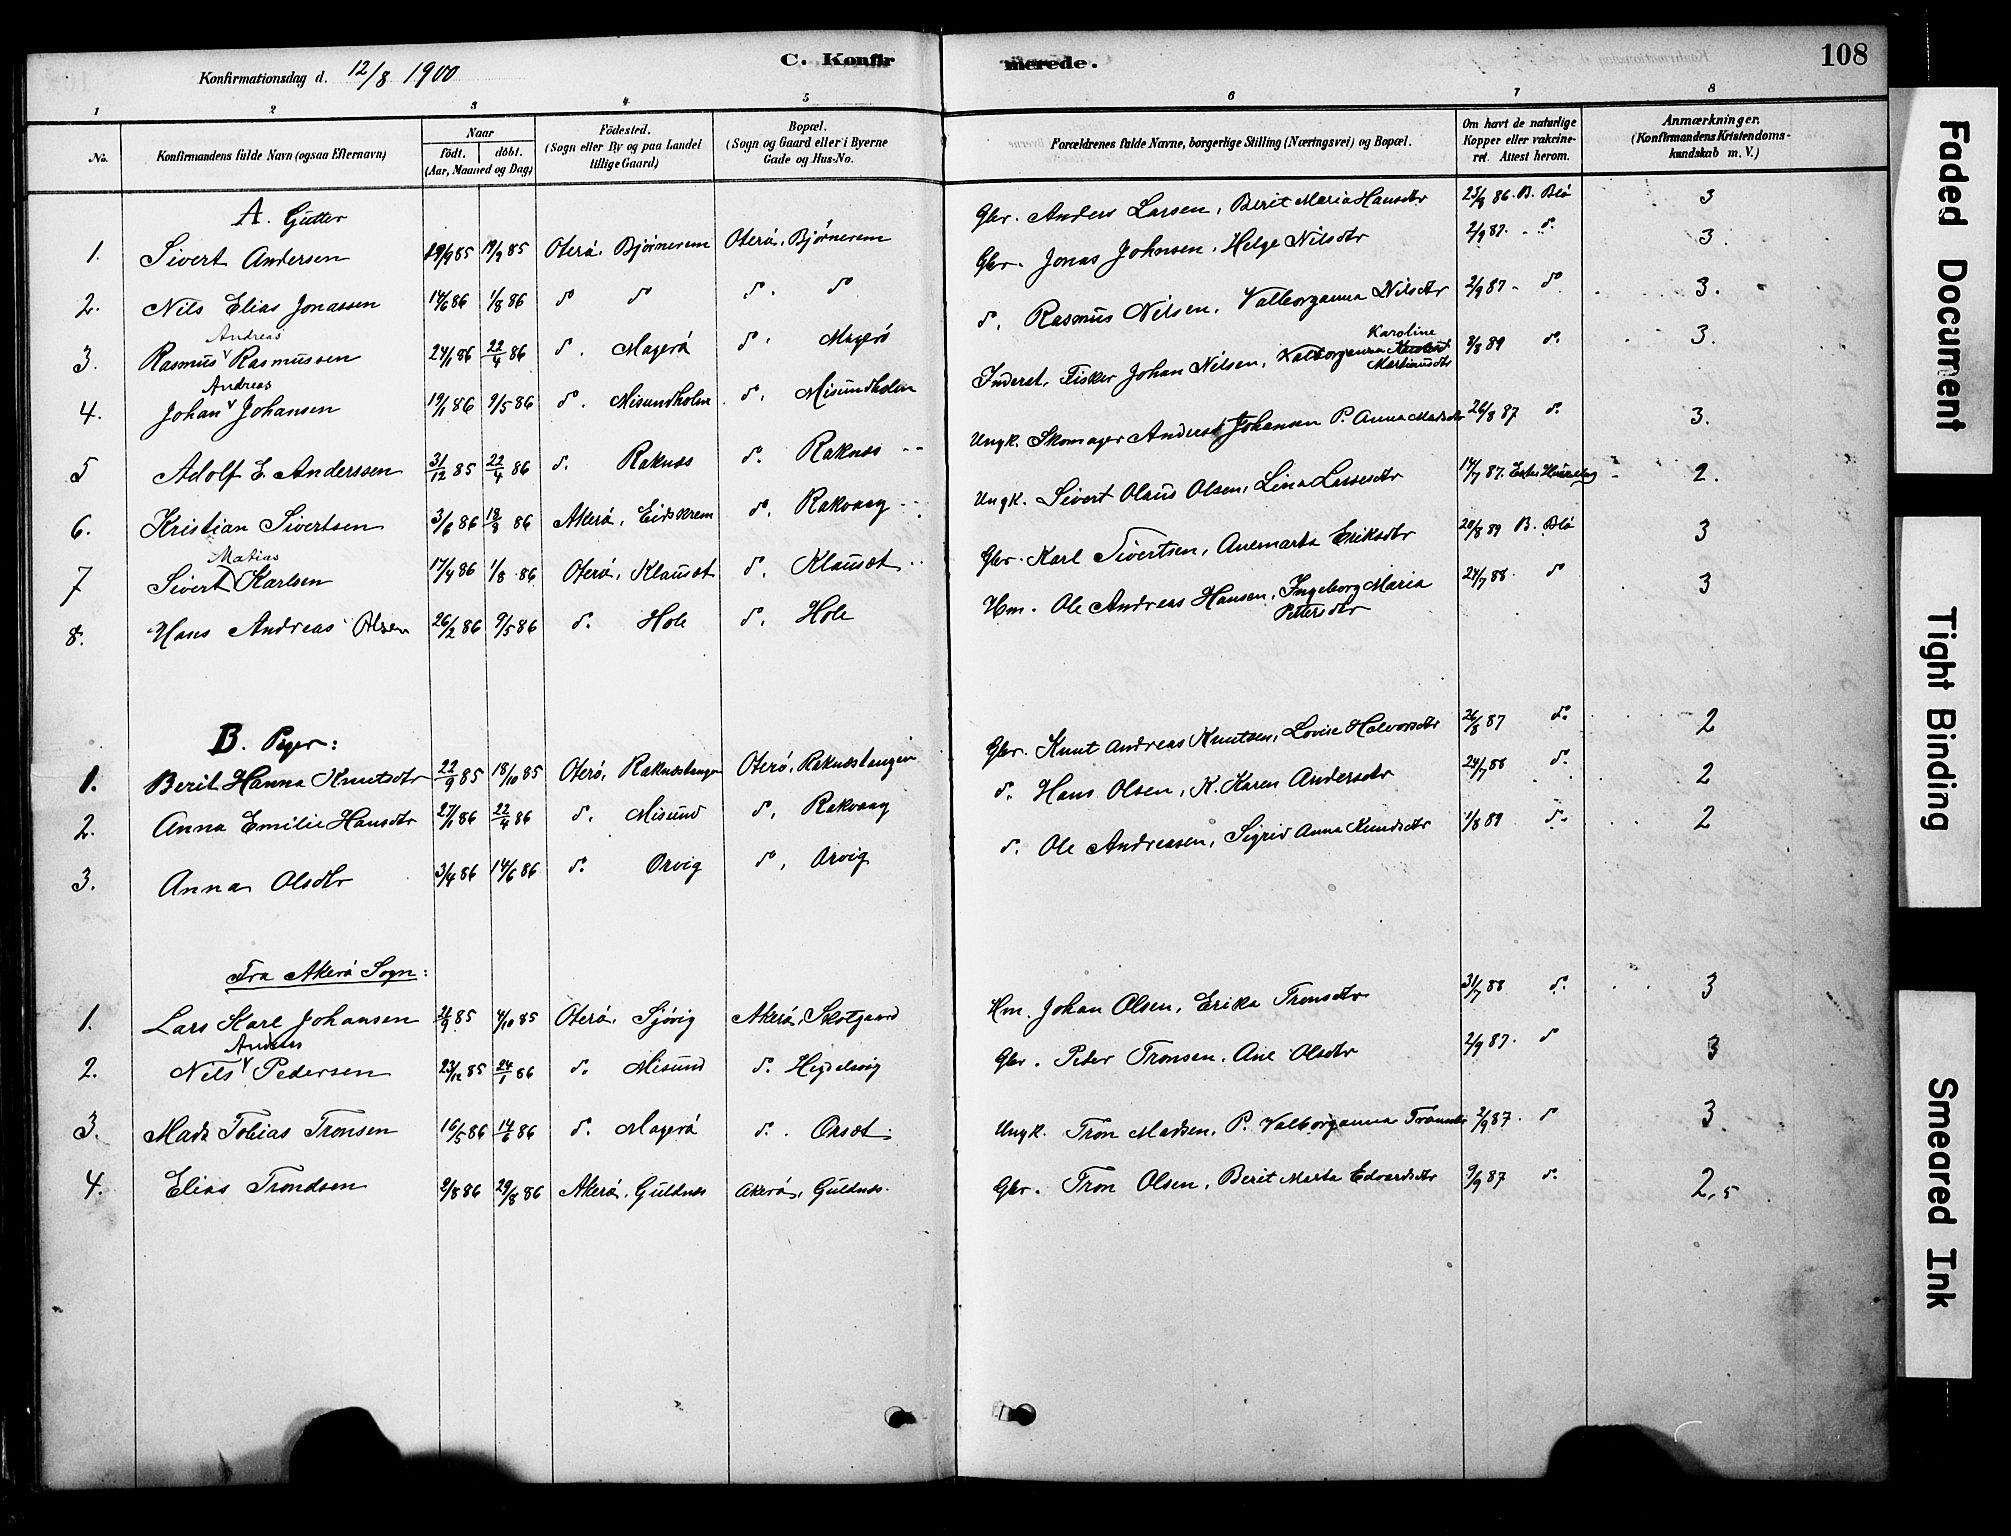 C. Konfirmerede. 108
Konfirmationsdag d. 12/8 1900
1 2 3 4 5 6 7 8
No. Konfirmandens fulde Navn (ogsaa Efternavn) Naar Födt. döbt. (Aar, Maaned og Dag) Födested. (Sogn eller By og paa Landet tillige Gaard) Bopæl. (Sogn og Gaard eller i Byerne Gade og Hus-No. Forældrenes fulde Navne, borgerlige Stilling (Næringsvei) og Bopæl. Om havt de naturlige Kopper eller vakcineret. Attest herom. Anmærkninger. (Konfirmandens Kristendomskundskab m. V.)
A. Gutter
1. Sivert Andersen 19/9 85 Oterö, Bjørnerem Oterö, Bjørnerem Gbr. Anders Larsen, Berit Maria Hansdtr 25/9 86 B. Blö 3
2. Nils Elias Jonassen 14/6 86 1/8 86 do do do. do Gbr. Jonas Johnsen, Helge Nilsdtr 2/9 87. do. 3.
3. Rasmus Andreas Rasmussen 24/1 86 22/4 86 do. Magerö do. Magerö do. Rasmus Nilsen, Valborganna Nilsdtr 2/9 87. do. 3.
4. Johan Andreas Johansen 19/1 86 9/5 86 do. Misundholm do. Misundholm Inderst, Fisker Johan Nilsen, Karoline Martinusdtr 3/8 89 do. 3.
5 Adolf E. Anderssen 31/12 85 22/4 86 do. Raknes do. Raknes Ungk. Skomager Anders Johansen P. Anna Madsdtr 26/8 87 do. 3.
6. Kristian Sivertsen 3/6 86 18/8 86 Akerö, Eidskrem do. Rakvaag Ungk. Sivert Olaus Olsen, Lina Larsesdtr 14/7 87. 2.
7 Sivert Matias Karlsen 17/4 86 1/8 86 Oterö, Klauset do. Klauset Gbr. Karl Sivertsen, Anemarta Eriksdtr 20/8 89 B. Blö 3
8. Hans Andreas Olsen 26/2 86 9/5 86 do. Hole do. Hole Hm. Ole Andreas Hansen, Ingeborg Maria Pettersdtr 24/7 88. do 3
B. Piger:
1. Berit Hanna Knutsdtr 22/9 85 18/10 85 Oterö, Raknestangen Oterö, Raknestangen Gbr. Knut Andreas Knutsen, Lovise Halvorsdtr 26/8 87 do. 2
2. Anna Emilie Hansdtr 27/1 86 22/4 86 do. Misund do. Rakvaag do. Hans Olsen, K. Karen Andersdtr 24/7 88 do. 2
3. Anna Olsdtr 3/4 86 14/6 86 do. Orvig do. Orvig do. Ole Andreasen, Sigrid Anna Knudsdtr 1/8 89 do. 2
Fra Akerö Sogn:
1. Lars Karl Johansen 2/9 85 4/10 85 Oterö, Sjövig Akerö, Slotgaard Hm. Johan Olsen, Erika Tronsdtr 31/7 88 do. 3
2. Nils Anders Pedersen 23/12 85 24/1 86 do. Misund do. Hegdelsvig Gbr. Peder Tronsen, Ane Olsdtr 2/9 87. do 3
3. Mads Tobias Tronsen 16/5 86 14/6 86 do. Magerö do. Orset. Ungk. Tron Madsen, P. Valborganna 2/9 87. do 3
4. Elias Trondsen 9/8 86 29/8 86 Akerö, Guldnes Akerö, Guldnes. Gbr. Tron Olsen, Berit Marta Edvardsdtr 9/9 87 do. 2,5
Faded Document
Tight Binding
Smeared Ink